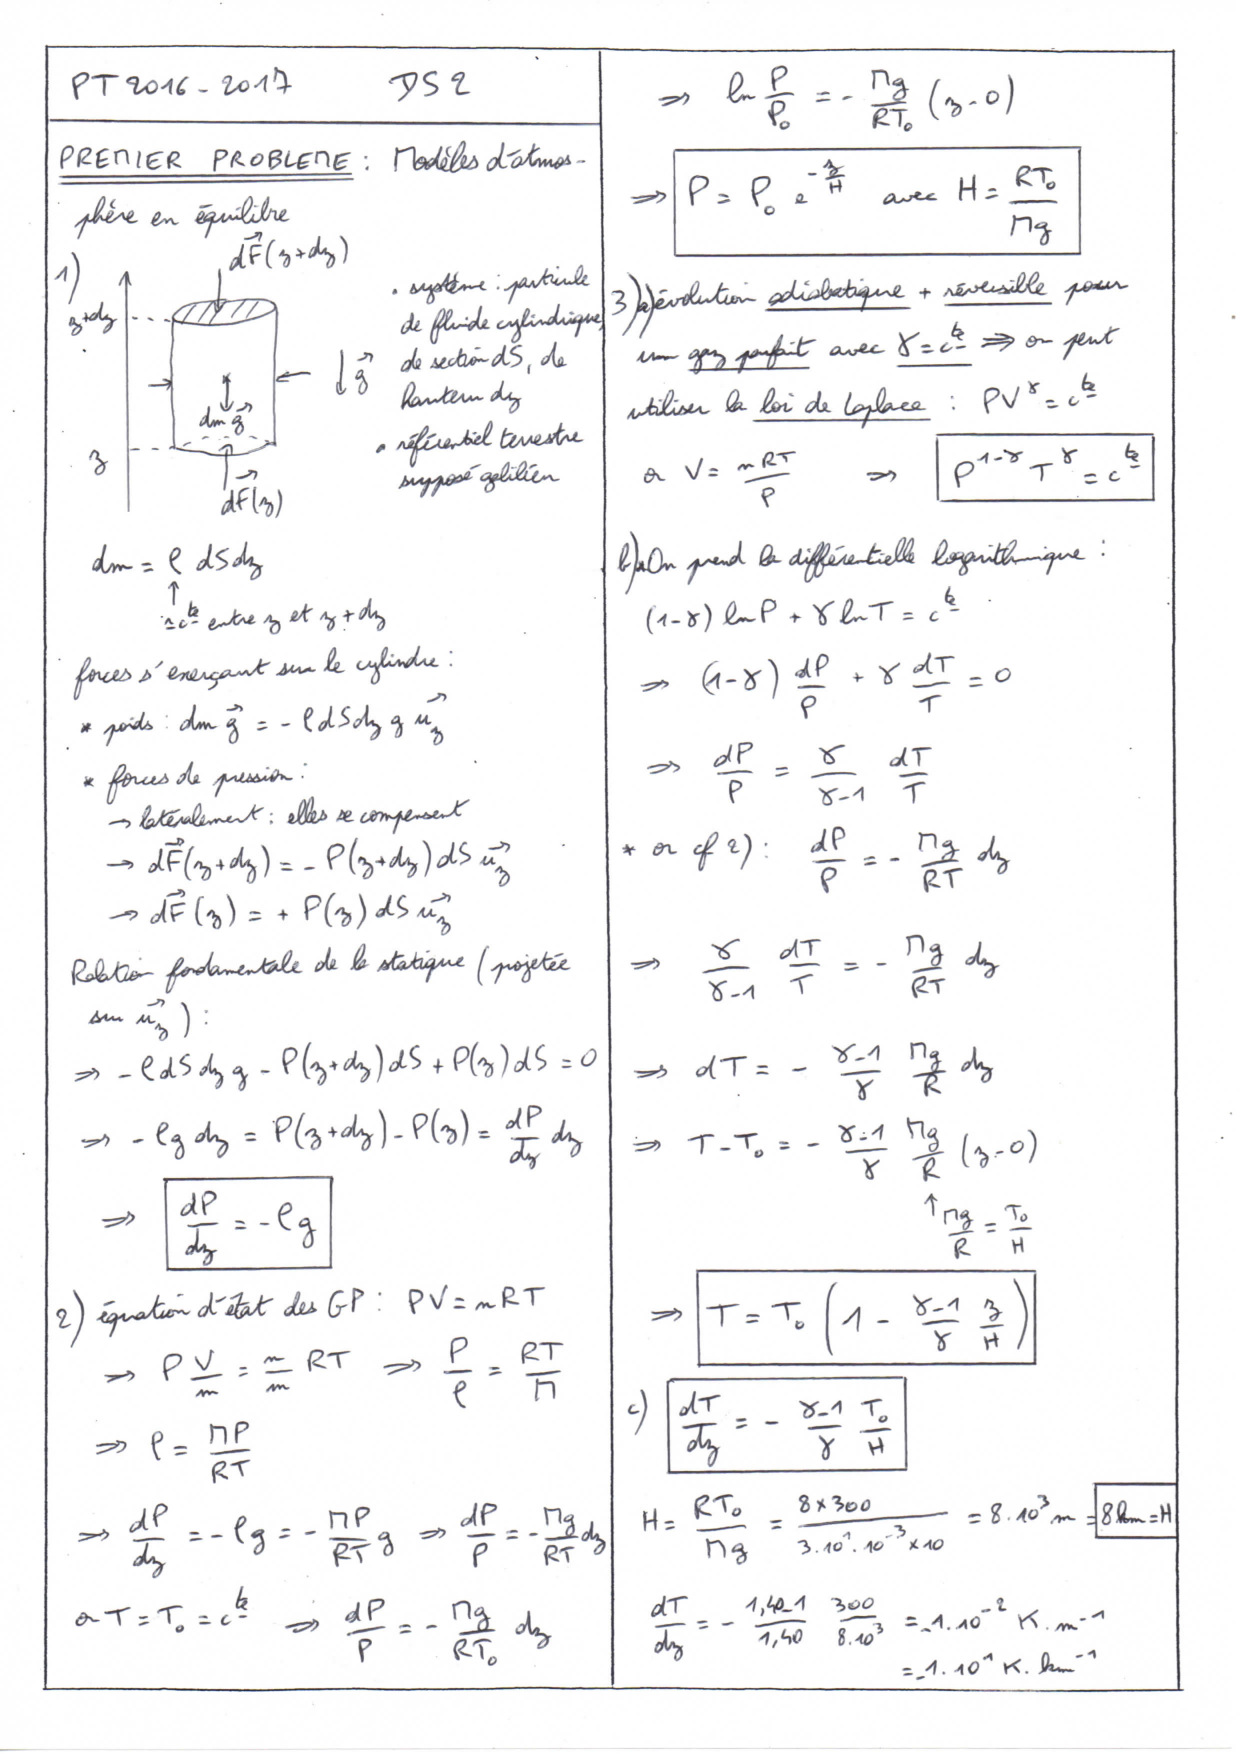 PT 2016-2017 DS 2
PREMIER PROBLEME : Modèles d'atmos-
phère en équilibre
1)
dF⃗(z+dz)
z+dz
z
dm g⃗
g⃗
dF⃗(z)
• système : particule
de fluide cylindrique,
de section dS, de
hauteur dz
• référentiel terrestre
supposé galiléen
dm = ρ dS dz
↑
≃ cte entre z et z+dz
forces s'exerçant sur le cylindre :
* poids : dm g⃗ = - ρ dS dz g u⃗z
* forces de pression :
→ latéralement : elles se compensent
→ dF⃗(z+dz) = - P(z+dz) dS u⃗z
→ dF⃗(z) = + P(z) dS u⃗z
Relation fondamentale de la statique (projetée
sur u⃗z) :
⇒ - ρ dS dz g - P(z+dz) dS + P(z) dS = 0
⇒ - ρ g dz = P(z+dz) - P(z) = dP/dz dz
⇒ dP/dz = - ρ g
2) équation d'état des GP : PV = nRT
⇒ P V/m = n/m RT ⇒ P/ρ = RT/M
⇒ ρ = MP/RT
⇒ dP/dz = - ρ g = - MP/RT g ⇒ dP/P = - Mg/RT dz
or T = T₀ = cte ⇒ dP/P = - Mg/RT₀ dz
⇒ ln P/P₀ = - Mg/RT₀ (z-0)
⇒ P = P₀ e^(-z/H) avec H = RT₀/Mg
3) a) évolution adiabatique + réversible pour
un gaz parfait avec γ = cte ⇒ on peut
utiliser la loi de Laplace : PV^γ = cte
or V = nRT/P ⇒ P^(1-γ) T^γ = cte
b) * On prend la différentielle logarithmique :
(1-γ) ln P + γ ln T = cte
⇒ (1-γ) dP/P + γ dT/T = 0
⇒ dP/P = γ/(γ-1) dT/T
* or cf 2) : dP/P = - Mg/RT dz
⇒ γ/(γ-1) dT/T = - Mg/RT dz
⇒ dT = - (γ-1)/γ Mg/R dz
⇒ T - T₀ = - (γ-1)/γ Mg/R (z-0)
↑ Mg/R = T₀/H
⇒ T = T₀ (1 - (γ-1)/γ z/H)
c) dT/dz = - (γ-1)/γ T₀/H
H = RT₀/Mg = (8×300)/(3.10¹.10⁻³×10) = 8.10³ m = 8 km = H
dT/dz = - (1,40-1)/1,40 300/8.10³ = -1.10⁻² K.m⁻¹
= -1.10¹ K.km⁻¹